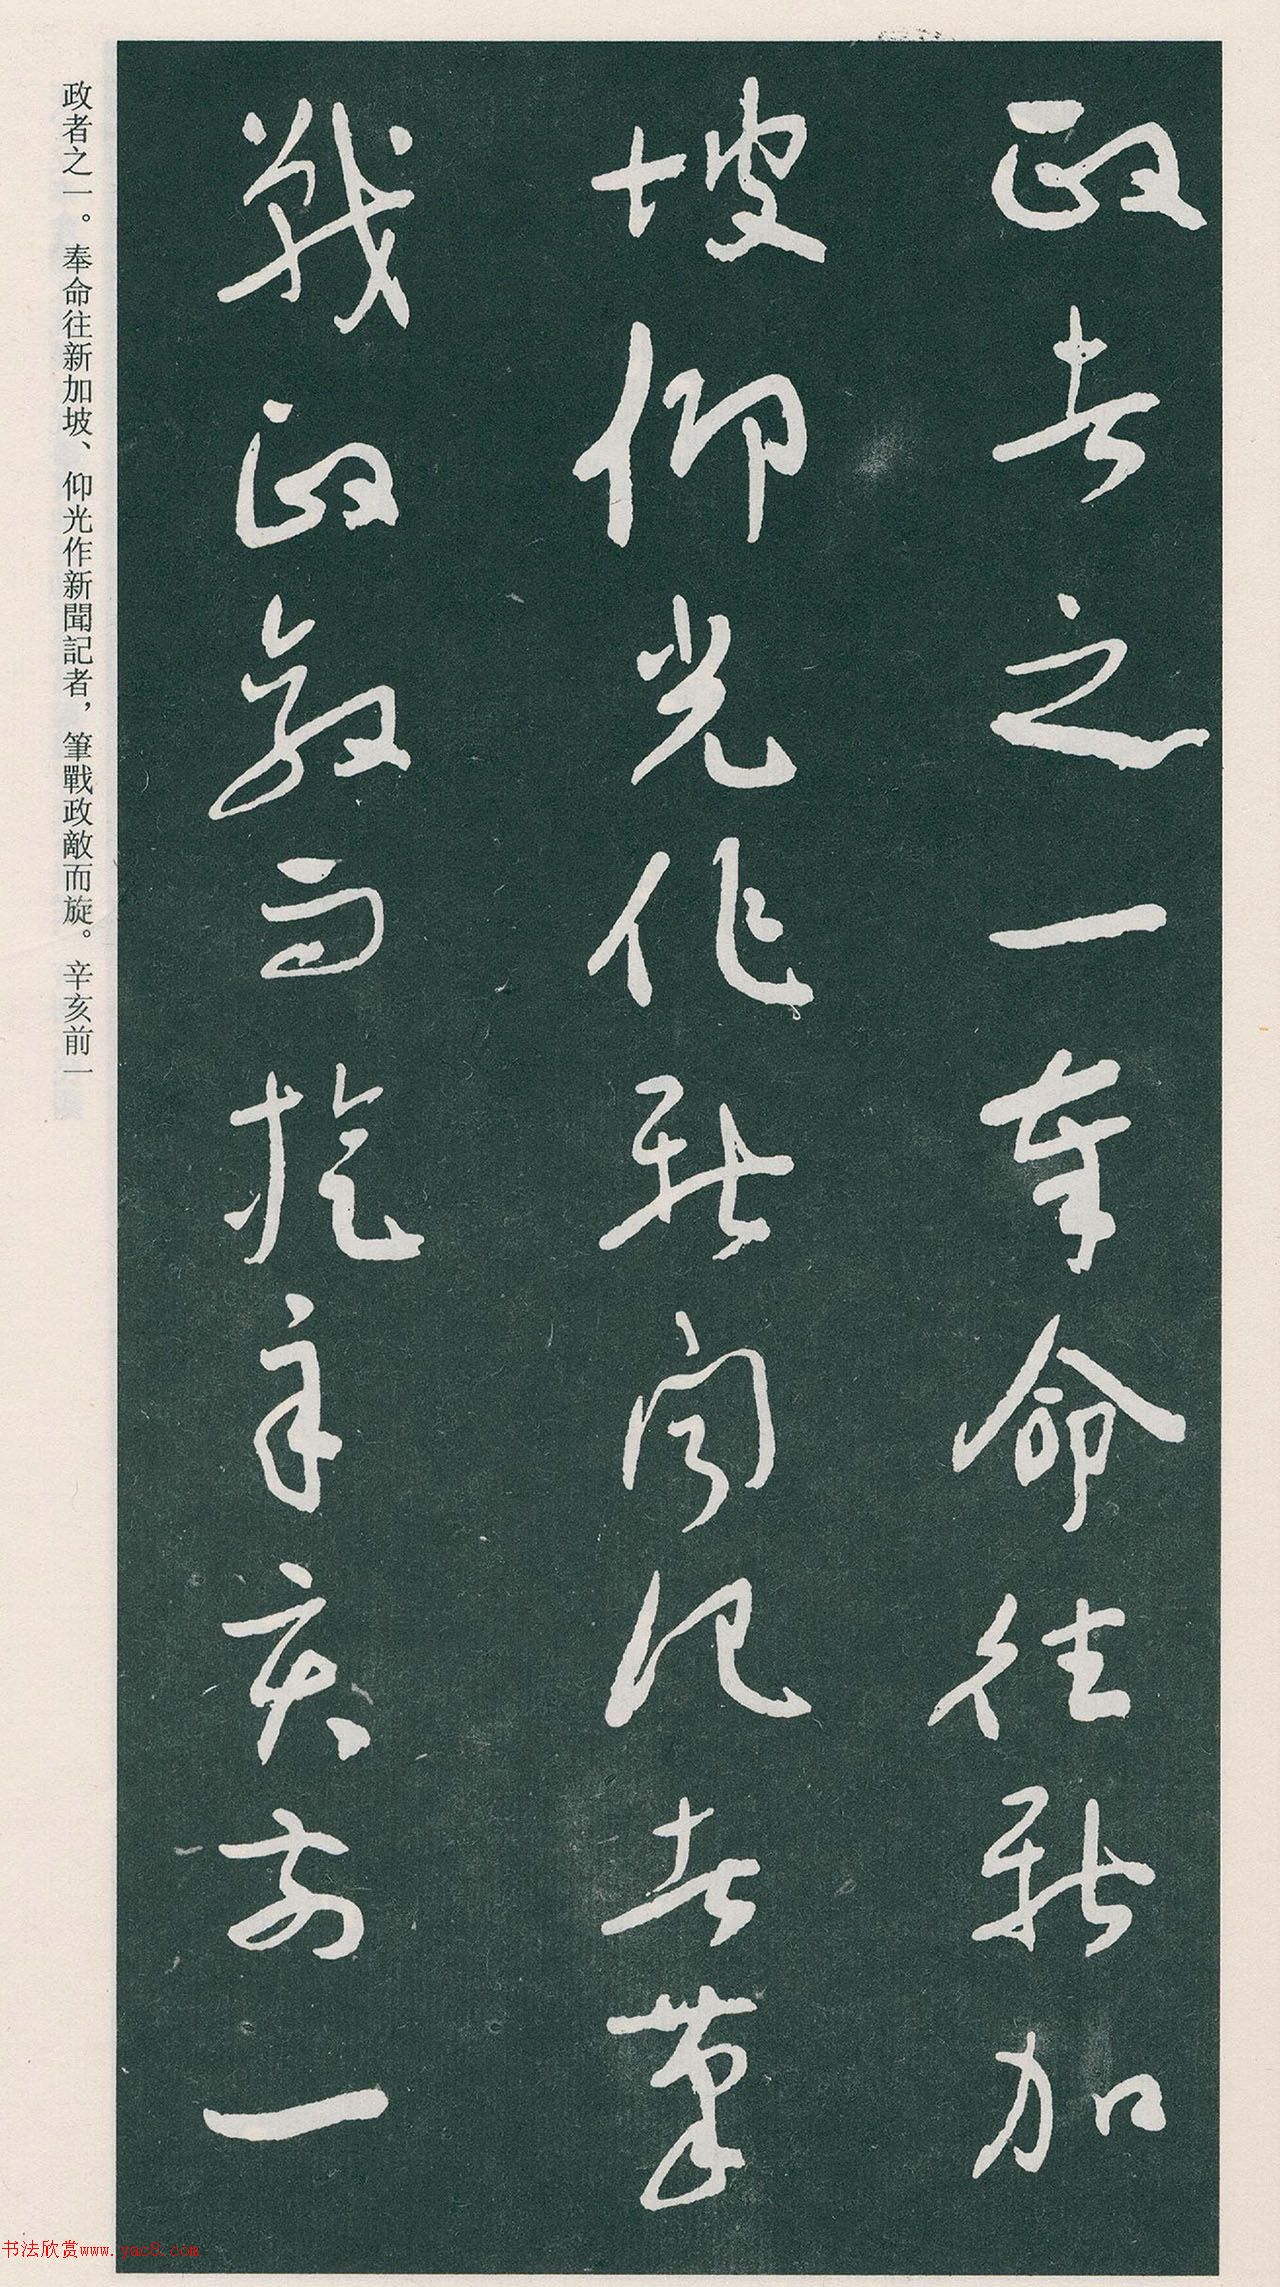 政者之一奉命往新加
坡仰光作新聞記者筆
戰政敵而旋辛亥前一
政者之一。奉命往新加坡、仰光作新聞記者，筆戰政敵而旋。辛亥前一
书法欣赏www.yac8.com